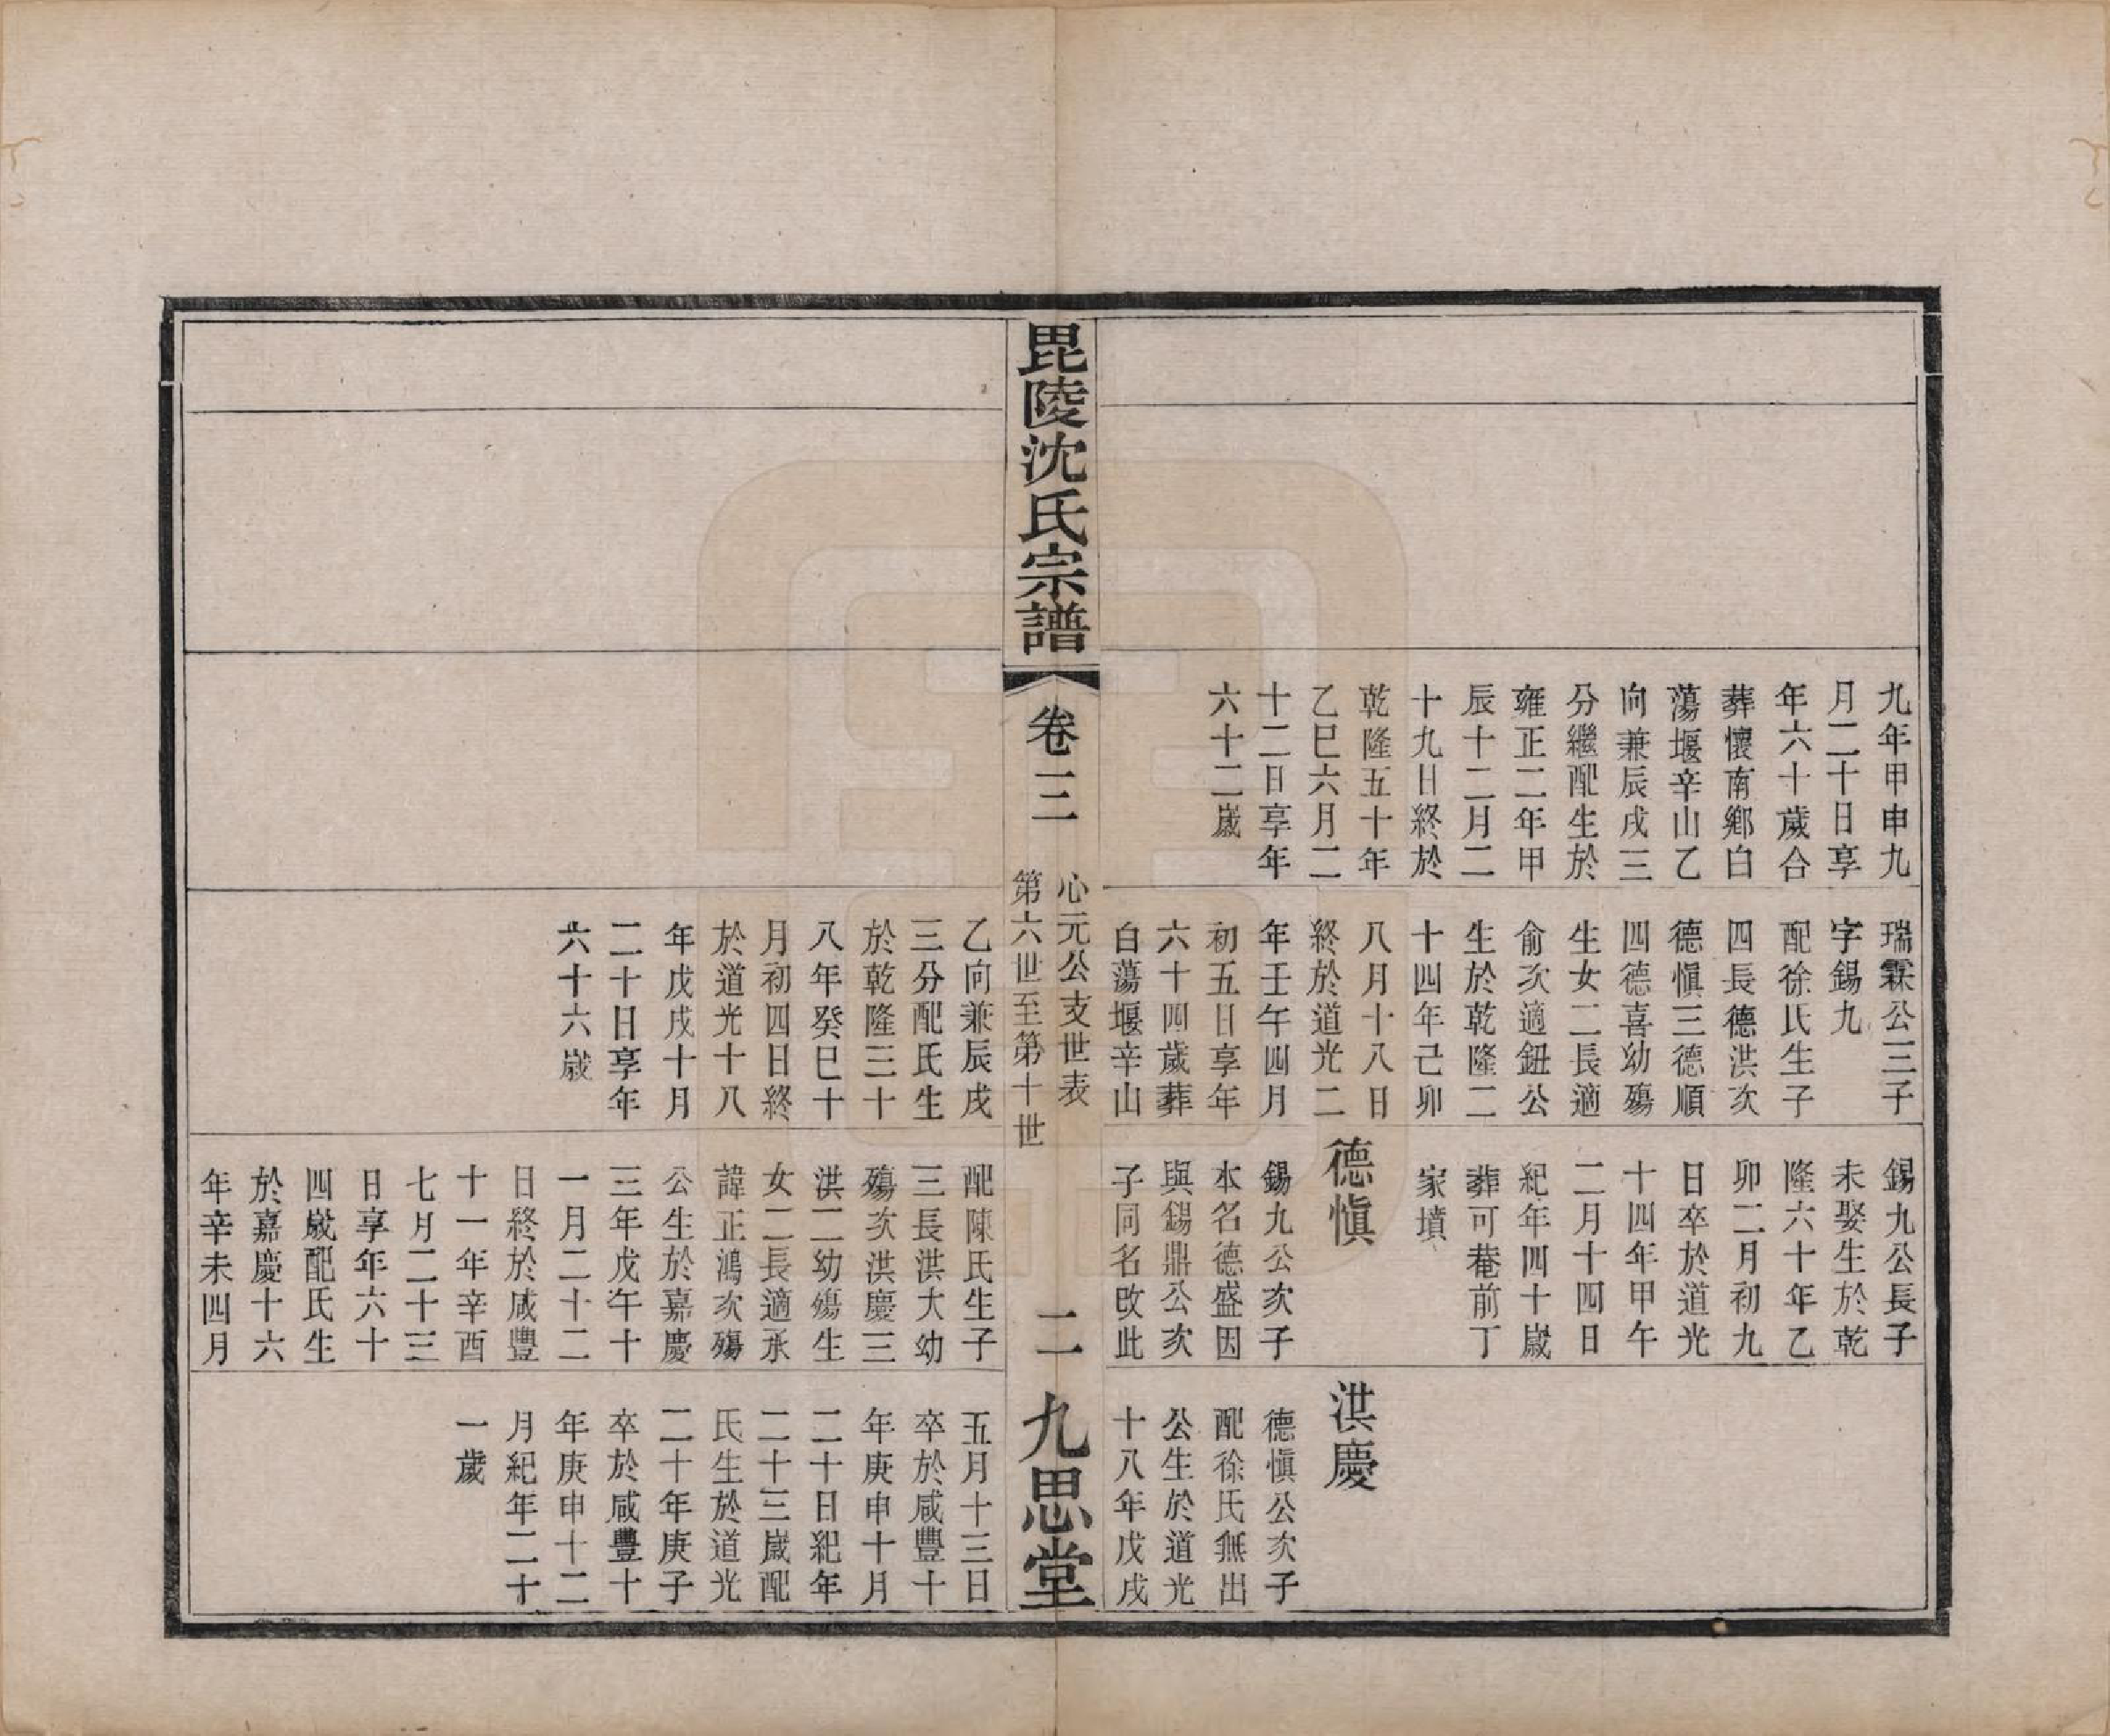 九年甲申九
月二十日享
年六十歲合
葬懷南鄉白
蕩堰辛山乙
向兼辰戌三
分繼配生於
雍正二年甲
辰十二月二
十九日終於
乾隆五十年
乙巳六月二
十二日享年
六十二歲
瑞霖公三子
字錫九
配徐氏生子
四長德洪次
德愼三德順
四德喜幼殤
生女二長適
俞次適鈕公
生於乾隆二
十四年己卯
八月十八日
終於道光二
年壬午四月
初五日享年
六十四歲葬
白蕩堰辛山
錫九公長子
未娶生於乾
隆六十年乙
卯二月初九
日卒於道光
十四年甲午
二月十四日
紀年四十歲
葬可菴前丁
家墳
德愼
錫九公次子
本名德盛因
與錫鼎公次
子同名改此
洪慶
德愼公次子
配徐氏無出
公生於道光
十八年戊戌
毘陵沈氏宗譜
卷三
心元公支世表
第六世至第十世
二
九思堂
乙向兼辰戌
三分配氏生
於乾隆三十
八年癸巳十
月初四日終
於道光十八
年戊戌十月
二十日享年
六十六歲
配陳氏生子
三長洪大幼
殤次洪慶三
洪二幼殤生
女二長適承
諱正鴻次殤
公生於嘉慶
三年戊午十
一月二十二
日終於咸豐
十一年辛酉
七月二十三
日享年六十
四歲配氏生
於嘉慶十六
年辛未四月
五月十三日
卒於咸豐十
年庚申十月
二十日紀年
二十三歲配
氏生於道光
二十年庚子
卒於咸豐十
年庚申十二
月紀年二十
一歲